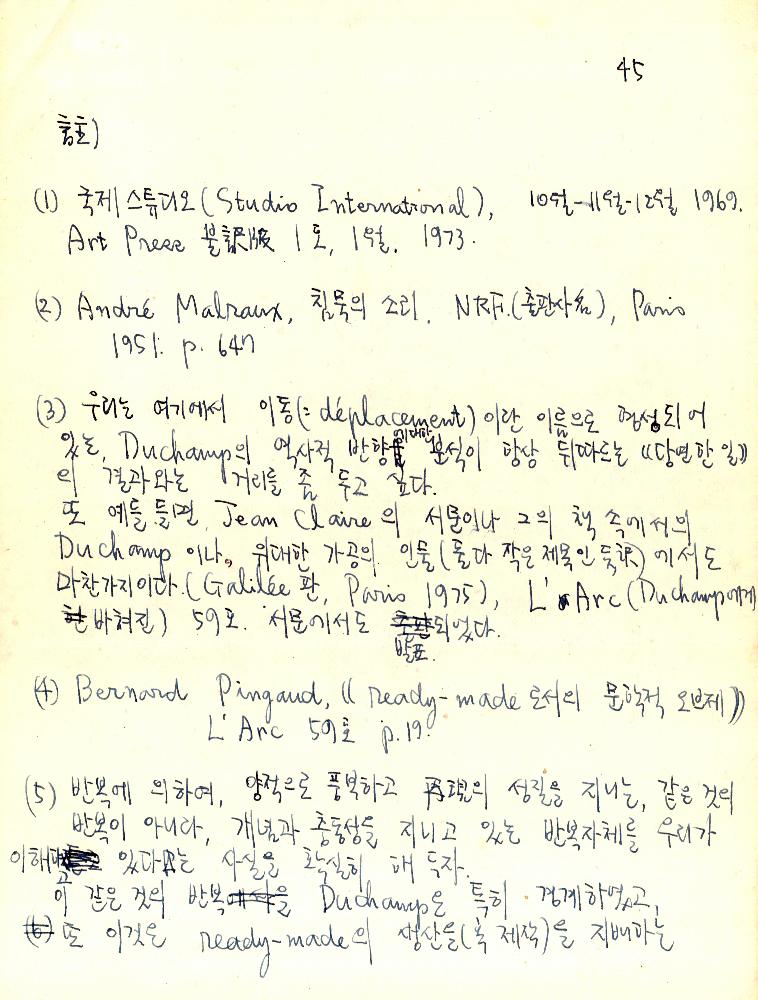 45
註)
(1) 국제 스튜디오 (Studio International), 10월-11월-12월 1969.
Art Press 불訳版 1호, 1월, 1973.
(2) André Malraux, 침묵의 소리, NRF.(출판사名), Paris
1951. p. 647
(3) 우리는 여기에서 이동(=déplacement)이란 이름으로 형성되어
있는, Duchamp의 역사적 반향에 대한 분석이 항상 뒤따르는 《당연한 일》
의 결과와는 거리를 좀 두고 싶다.
또 예를 들면, Jean Claire의 서문이나 그의 책 속에서의
Duchamp 이나, 위대한 가공의 인물(둘다 작은 제목인 듯)에서도
마찬가지이다.(Galilée 판, Paris 1975), L'Arc (Duchamp에게
바쳐진) 59호. 서문에서도 발표되었다.
(4) Bernard Pingaud, 《ready-made로서의 문학적 오브제》
L'Arc 59호 p.19.
(5) 반복에 의하여, 양적으로 풍복하고 再現의 성질을 지니는, 같은 것의
반복이 아니라, 개념과 충동성을 지니고 있는 반복자체를 우리가
이해하고 있다는 사실을 확실히 해 두자.
이 같은 것의 반복을 Duchamp은 특히 경계하였고,
또 이것은 ready-made의 생산을(복제작)을 지배하는